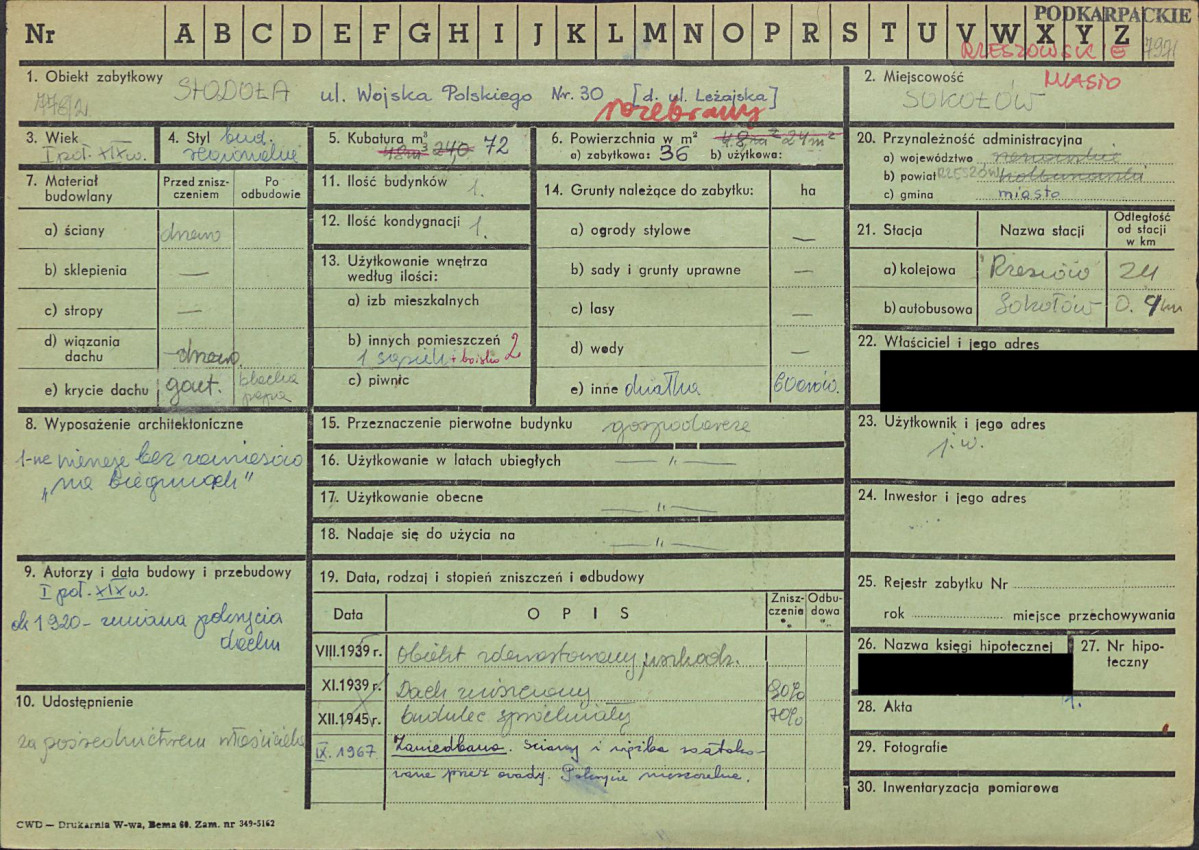 PODKARPACKIE
Nr A B C D E F G H I J K L M N O P R S T U V W X Y Z
RZESZOWSKIE
MIASTO
1. Obiekt zabytkowy
STODOŁA ul. Wojska Polskiego Nr. 30 [d. ul. Leżajska]
rozebrany
2. Miejscowość
SOKOŁÓW
3. Wiek
I poł. XIX w.
4. Styl bud.
regionalne
5. Kubatura m³
18m³ 24,0 72
6. Powierzchnia w m²
a) zabytkowa: 36 b) użytkowa:
20. Przynależność administracyjna
a) województwo rzeszowskie
b) powiat RZESZÓW kolbuszowski
c) gmina miasto
7. Materiał budowlany
Przed znisz-
czeniem
Po
odbudowie
a) ściany drewno
b) sklepienia —
c) stropy —
d) wiązania
dachu drewno
e) krycie dachu gont. blacha
papa
11. Ilość budynków 1.
12. Ilość kondygnacji 1.
13. Użytkowanie wnętrza
według ilości:
a) izb mieszkalnych
b) innych pomieszczeń
1 sąsiek + boisko 2
c) piwnic
14. Grunty należące do zabytku: ha
a) ogrody stylowe —
b) sady i grunty uprawne —
c) lasy —
d) wody —
e) inne działka 6 arów.
21. Stacja
Nazwa stacji
Odległość
od stacji
w km
a) kolejowa Rzeszów 24
b) autobusowa Sokołów 0.4 km
22. Właściciel i jego adres
8. Wyposażenie architektoniczne
"na biegunach"
15. Przeznaczenie pierwotne budynku gospodarcze
16. Użytkowanie w latach ubiegłych — " —
17. Użytkowanie obecne — " —
18. Nadaje się do użycia na — " —
23. Użytkownik i jego adres
j.w.
24. Inwestor i jego adres
9. Autorzy i data budowy i przebudowy
I poł. XIX w.
ok 1920 - zmiana pokrycia
dachu
19. Data, rodzaj i stopień zniszczeń i odbudowy
Data
O P I S
Znisz-
czenie
%
Odbu-
dowa
%
VIII.1939 r. Obiekt zdewastowany, uszkodz.
XI.1939 r. Dach zniszczony 30%
XII.1945 r. budulec spróchniały 70%
IX. 1967 Zaniedbana. Ściany i więźba zaatako-
wane przez owady. Pokrycie nieszczelne.
10. Udostępnienie
za pośrednictwem właściciela
25. Rejestr zabytku Nr
rok miejsce przechowywania
26. Nazwa księgi hipotecznej
27. Nr hipo-
teczny
28. Akta
29. Fotografie
30. Inwentaryzacja pomiarowa
CWD — Drukarnia W-wa, Bema 60. Zam. nr 349-5162